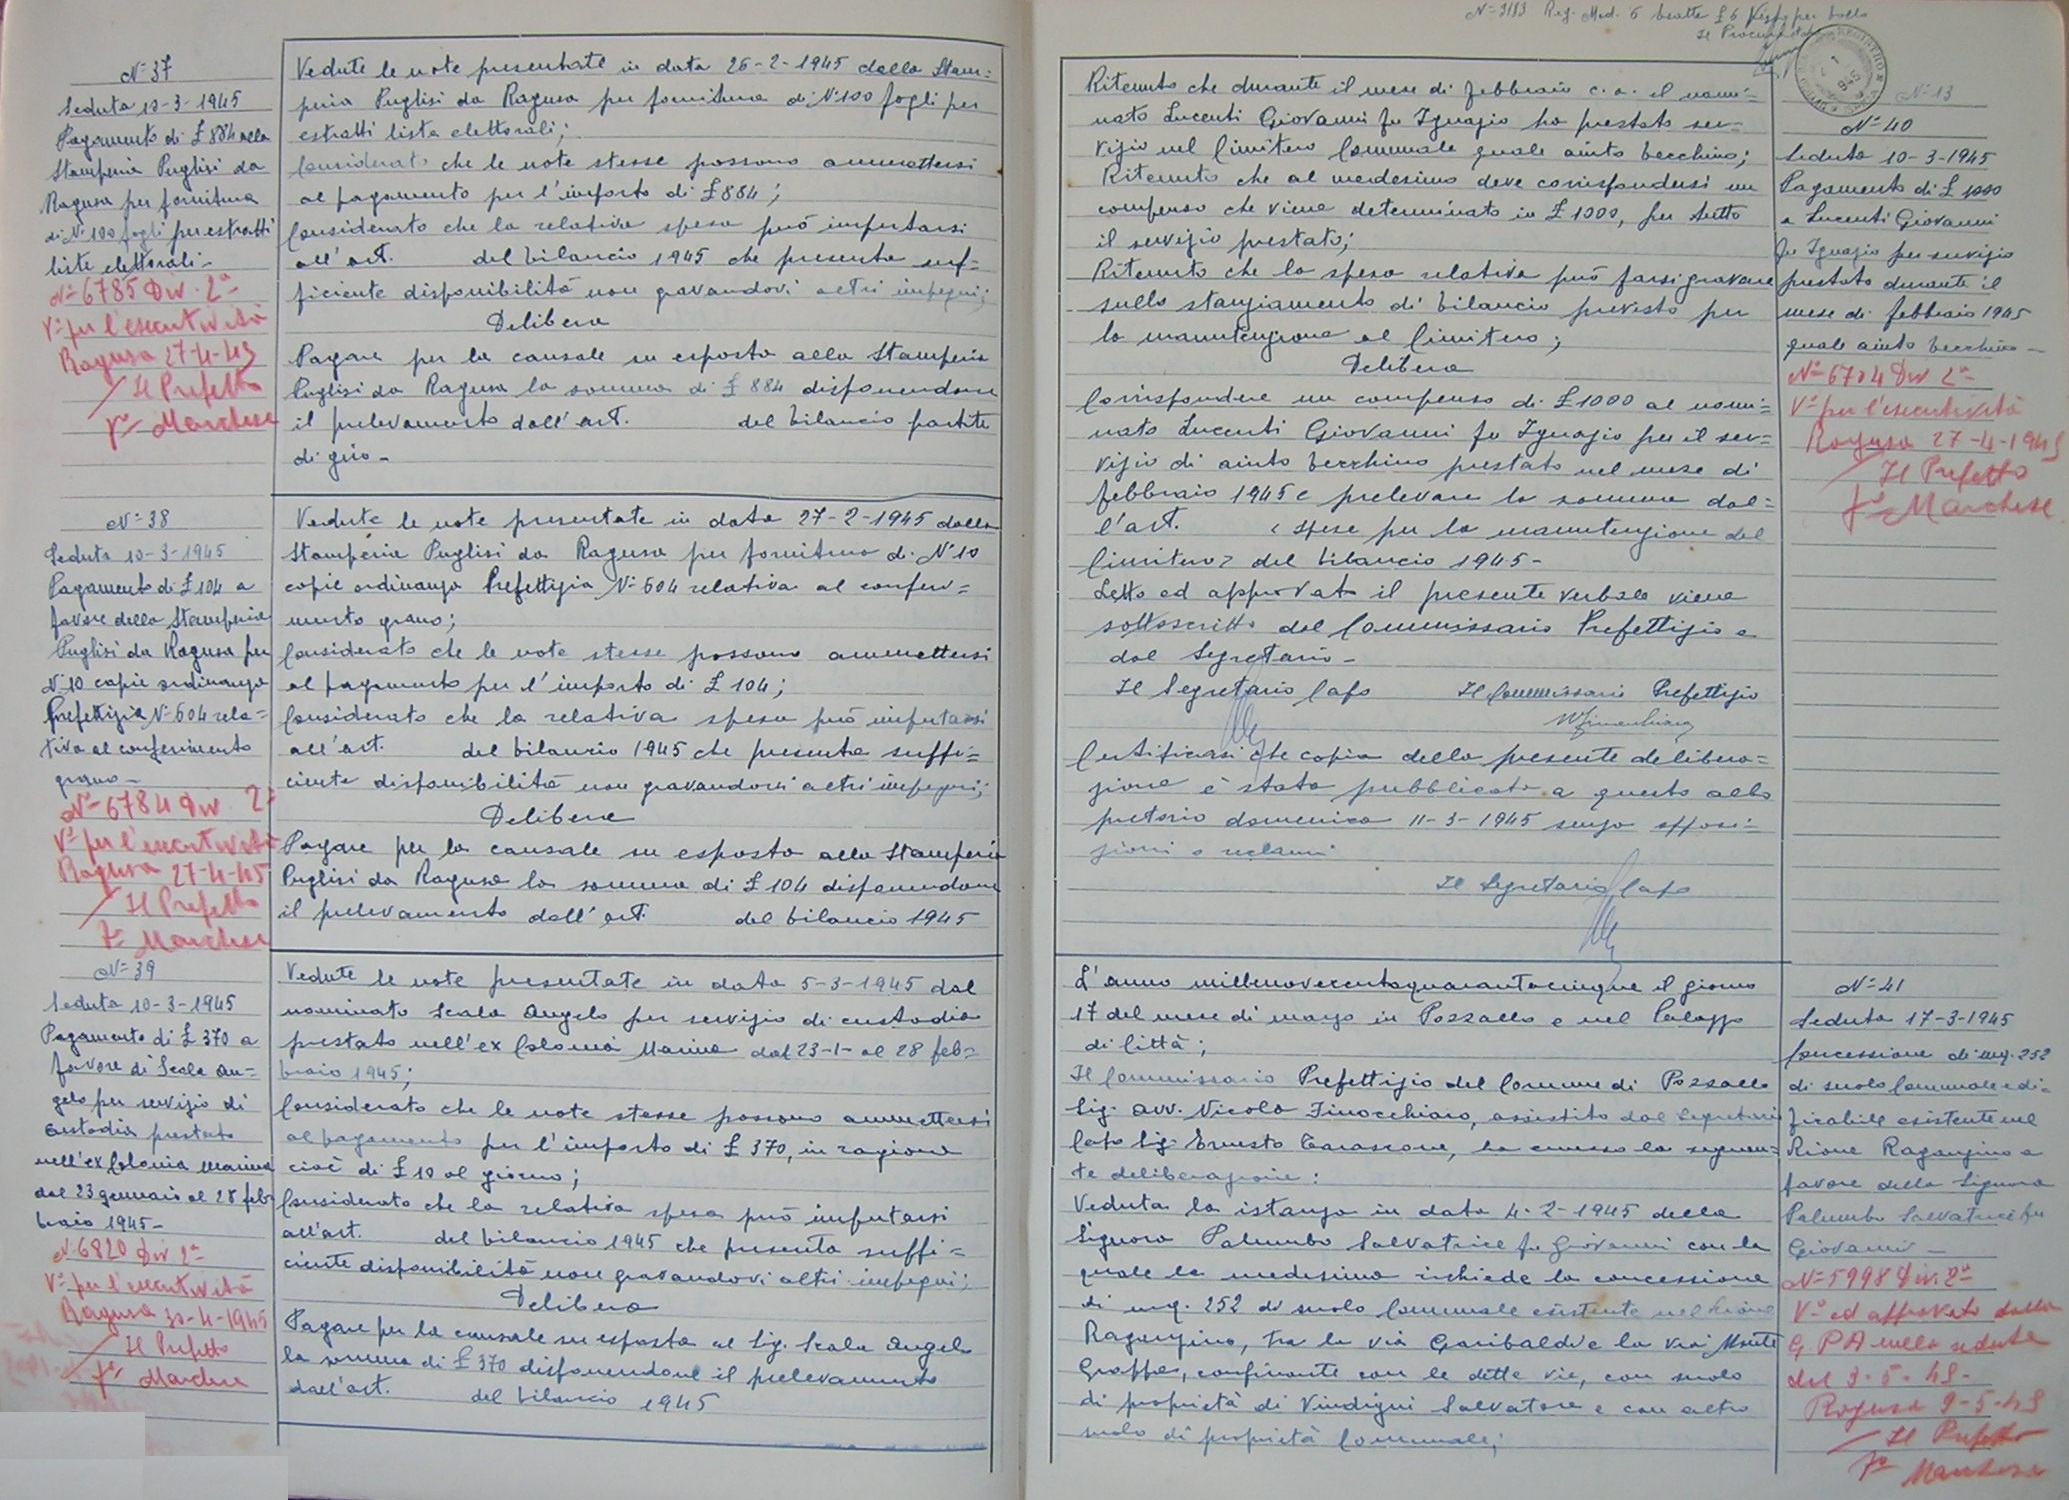 N° 37
Seduta 10-3-1945
Pagamento di £ 884 alla
Stamperia Puglisi da
Ragusa per fornitura
di N° 100 fogli per estratti
liste elettorali -
N° 6785 Div. 2ª
V° per l'esecutività
Ragusa 27-4-45
Il Prefetto
F° Marchese
Vedute le note presentate in data 26-2-1945 dalla Stam=
peria Puglisi da Ragusa per fornitura di N° 100 fogli per
estratti lista elettorali;
Considerato che le note stesse possono ammettersi
al pagamento per l'importo di £ 884;
Considerato che la relativa spesa può imputarsi
all'art. del bilancio 1945 che presenta suf=
ficiente disponibilità non gravandovi altri impegni;
Delibera
Pagare per la causale su esposta alla Stamperia
Puglisi da Ragusa la somma di £ 884 disponendone
il prelevamento dall'art. del bilancio partite
di giro -
N° 38
Seduta 10-3-1945
Pagamento di £ 104 a
favore della Stamperia
Puglisi da Ragusa per
N° 10 copie ordinanza
Prefettizia N° 604 rela=
tiva al conferimento
grano -
N° 6784 Div. 2ª
V° per l'esecutività
Ragusa 27-4-45
Il Prefetto
F° Marchese
Vedute le note presentate in data 27-2-1945 dalla
Stamperia Puglisi da Ragusa per fornitura di N° 10
copie ordinanza Prefettizia N° 604 relativa al conferi=
mento grano;
Considerato che le note stesse possono ammettersi
al pagamento per l'importo di £ 104;
Considerato che la relativa spesa può imputarsi
all'art. del bilancio 1945 che presenta suffi=
ciente disponibilità non gravandovi altri impegni;
Delibera
Pagare per la causale su esposta alla Stamperia
Puglisi da Ragusa la somma di £ 104 disponendone
il prelevamento dall'art. del bilancio 1945
N° 39
Seduta 10-3-1945
Pagamento di £ 370 a
favore di Scala An=
gelo per servizio di
custodia prestato
nell'ex Colonia Marina
dal 23 gennaio al 28 feb=
braio 1945 -
N° 6820 Div 2ª
V° per l'esecutività
Ragusa 30-4-1945
Il Prefetto
F° Marchese
Vedute le note presentate in data 5-3-1945 dal
nominato Scala Angelo per servizio di custodia
prestato nell'ex Colonia Marina dal 23-1- al 28 feb=
braio 1945;
Considerato che le note stesse possono ammettersi
al pagamento per l'importo di £ 370, in ragione
cioè di £ 10 al giorno;
Considerato che la relativa spesa può imputarsi
all'art. del bilancio 1945 che presenta suffi=
ciente disponibilità non gravandovi altri impegni;
Delibera
Pagare per la causale su esposta al Sig. Scala Angelo
la somma di £ 370 disponendone il prelevamento
dall'art. del bilancio 1945
Il Procuratore
N° 13
Ritenuto che durante il mese di febbraio c. a. il nomi=
nato Lucenti Giovanni fu Ignazio ha prestato ser=
vizio nel Cimitero Comunale quale aiuto becchino;
Ritenuto che al medesimo deve corrispondersi un
compenso che viene determinato in £ 1000, per tutto
il servizio prestato;
Ritenuto che la spesa relativa può farsi gravare
sullo stanziamento di bilancio previsto per
la manutenzione al Cimitero;
Delibera
Corrispondere un compenso di £ 1000 al nomi=
nato Lucenti Giovanni fu Ignazio per il ser=
vizio di aiuto becchino prestato nel mese di
febbraio 1945 e prelevare la somma dal=
l'art. < spese per la manutenzione del
Cimitero > del bilancio 1945 -
Letto ed approvato il presente verbale viene
sottoscritto dal Commissario Prefettizio e
dal Segretario -
Il Segretario Capo Il Commissario Prefettizio
Certificasi che copia della presente delibera=
zione è stata pubblicata a questo albo
pretorio domenica 11-3-1945 senza opposi=
zioni o reclami
Il Segretario Capo
N° 40
Seduta 10-3-1945
Pagamento di £ 1000
a Lucenti Giovanni
fu Ignazio per servizio
prestato durante il
mese di febbraio 1945
quale aiuto becchino -
N° 6704 Div 2ª
V° per l'esecutività
Ragusa 27-4-1945
Il Prefetto
F° Marchese
L'anno millenovecentoquarantacinque il giorno
17 del mese di marzo in Pozzallo e nel Palazzo
di Città;
Il Commissario Prefettizio del Comune di Pozzallo
Sig. Avv. Nicola Finocchiaro, assistito dal Segretario
Capo Sig. Ernesto Tarascone, ha emesso la seguen=
te deliberazione:
Veduta la istanza in data 4-2-1945 della
Signora Palumbo Salvatrice fu Giovanni con la
quale la medesima richiede la concessione
di mq. 252 di suolo Comunale esistente nel Rione
Raganzino, tra la via Garibaldi e la via Monte
Grappa, confinante con le dette vie, con suolo
di proprietà di Vindigni Salvatore e con altro
suolo di proprietà Comunale;
N° 41
Seduta 17-3-1945
Concessione di mq. 252
di suolo Comunale edi=
ficabile esistente nel
Rione Raganzino a
favore della Signora
Palumbo Salvatrice fu
Giovanni -
N° 5998 Div. 2ª
V° ed approvato dalla
G.P.A nella seduta
del 3-5-45 -
Ragusa 9-5-45
Il Prefetto
F° Marchese